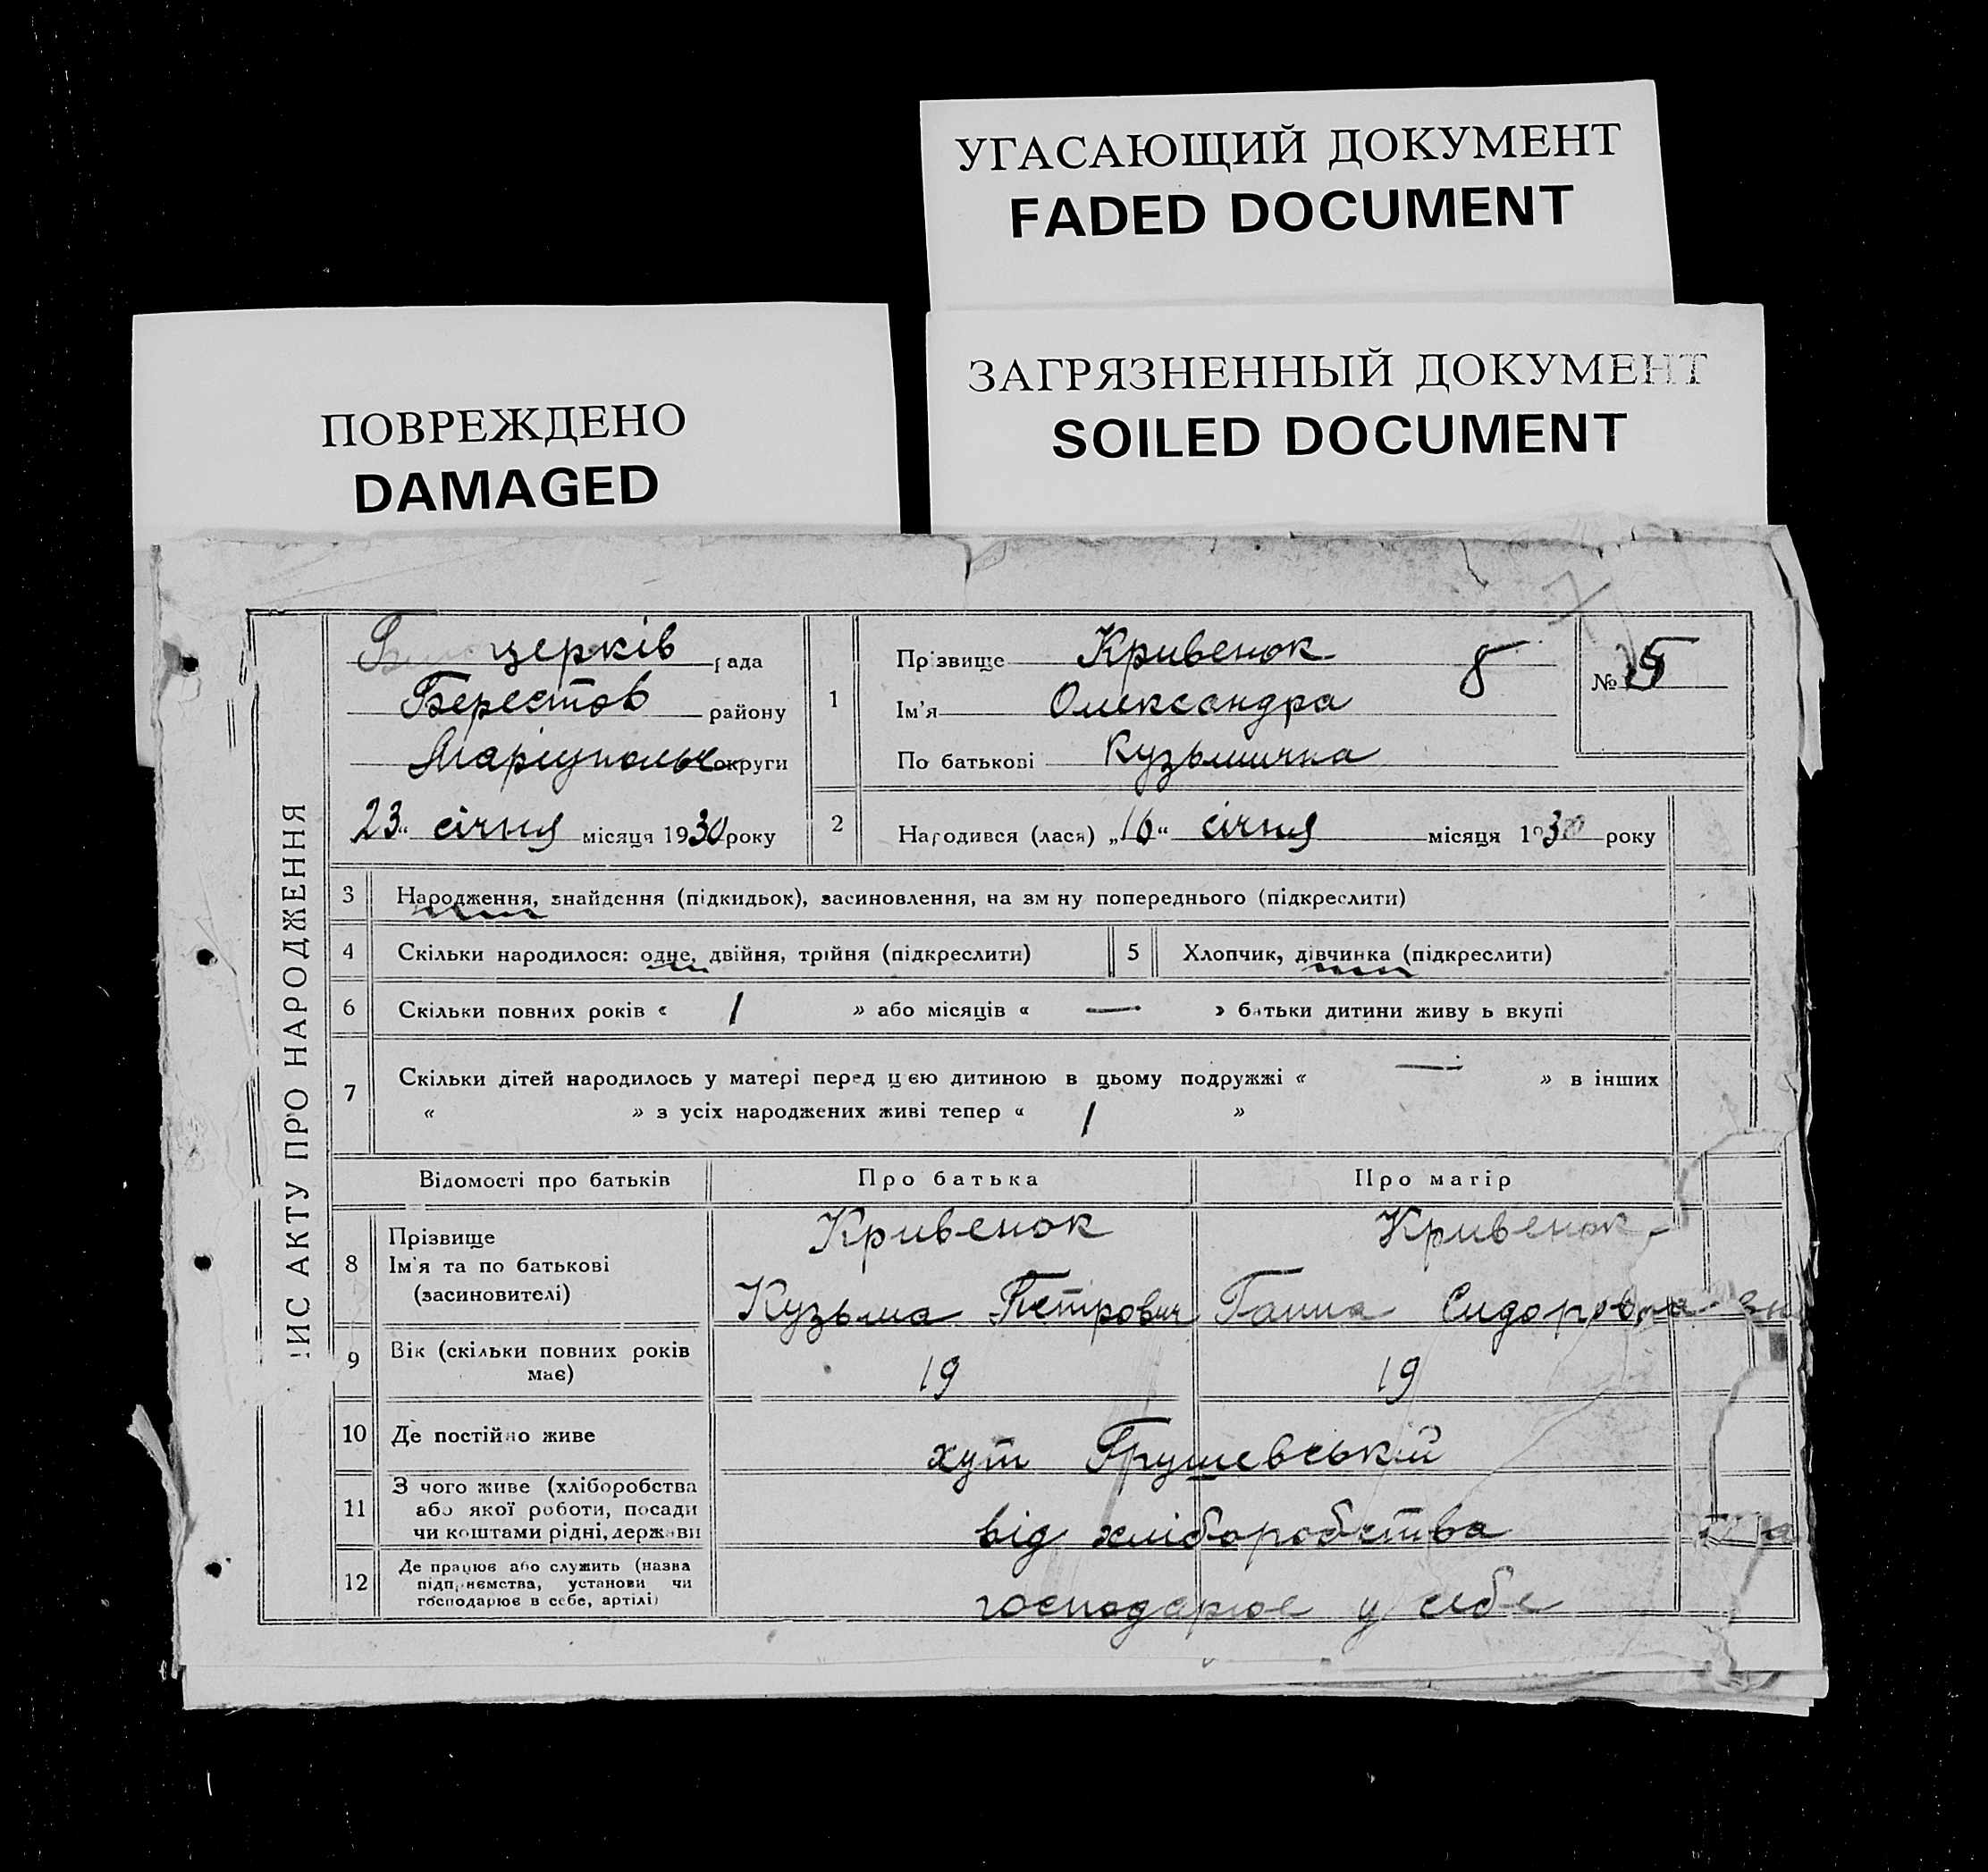 УГАСАЮЩИЙ ДОКУМЕНТ
FADED DOCUMENT
ЗАГРЯЗНЕННЫЙ ДОКУМЕНТ
SOILED DOCUMENT
ПОВРЕЖДЕНО
DAMAGED
ИС АКТУ ПРО НАРОДЖЕННЯ
церків рада
Берестов району
Маріупольс округи
23 " січня місяця 1930 року
1
Прізвище Кривенок 8
Ім'я Олександра
По батькові Кузьминична
№ 5
2 Народився (лася) „16" січня місяця 1930 року
3 Народження, знайдення (підкидьок), засиновлення, на зм ну попереднього (підкреслити)
4 Скільки народилося: одне, двійня, трійня (підкреслити)
5 Хлопчик, дівчинка (підкреслити)
6 Скільки повних років « 1 » або місяців « — » батьки дитини живу ь вкупі
7 Скільки дітей народилось у матері перед цією дитиною в цьому подружжі « — » в інших
« » з усіх народжених живі тепер « 1 »
Відомості про батьків Про батька Про матір
8 Прізвище
Ім'я та по батькові
(засиновителі)
Кривенок
Кузьма Петрович
Кривенок
Ганна Сидоровна
9 Вік (скільки повних років
має)
19 19
10 Де постійно живе хут Грушевський
11 З чого живе (хліборобства
або якої роботи, посади
чи коштами рідні, держави
від хліборобства
12 Де працює або служить (назва
підприємства, установи чи
господарює в себе, артілі)
господарює у себе